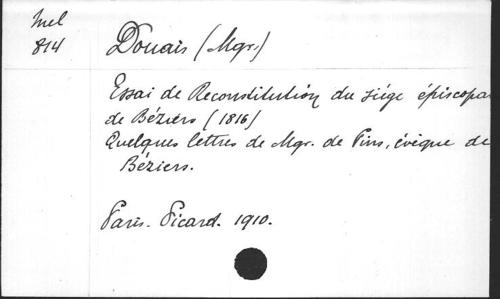 Mel
814
Douais (Mgr.)
Essai de Reconstitution du siége épiscopa
de Béziers (1816)
Quelques lettres de Mgr. de Pins, évêque de
Béziers.
Paris. Picard. 1910.